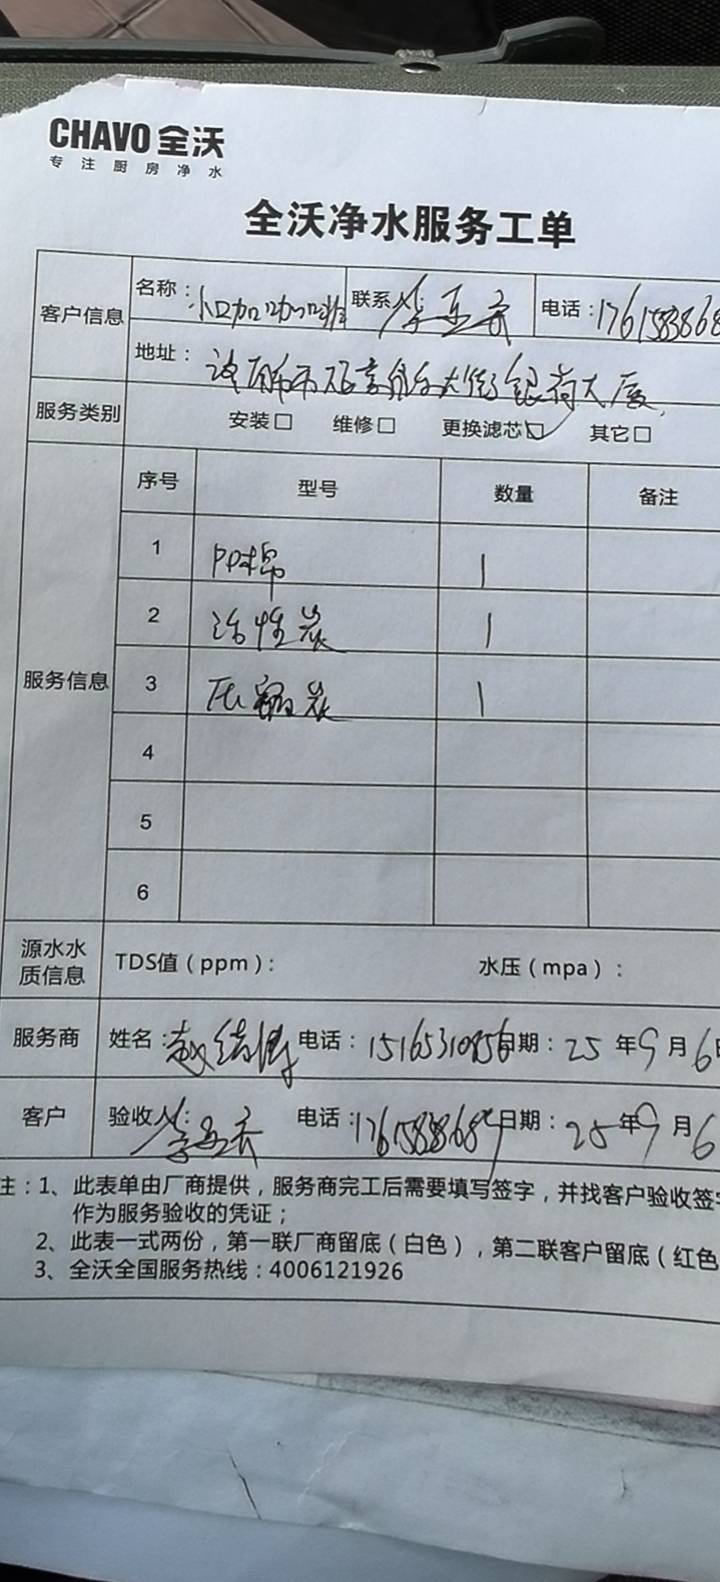 CHAVO 全沃
专注厨房净水
全沃净水服务工单
客户信息 名称： 联系人： 李 电话：
地址： 济南市 大街银荷大厦
服务类别 安装□ 维修□ 更换滤芯☑ 其它□
服务信息 序号 型号 数量 备注
1 PP棉 1
2 活性炭 1
3 压缩炭 1
4
5
6
源水水质信息 TDS值（ppm）： 水压（mpa）：
服务商 姓名： 赵 电话： 日期：25年9月6日
客户 验收人： 李 电话： 日期：25年9月6
注：1、此表单由厂商提供，服务商完工后需要填写签字，并找客户验收签字
作为服务验收的凭证；
2、此表一式两份，第一联厂商留底（白色），第二联客户留底（红色
3、全沃全国服务热线：4006121926